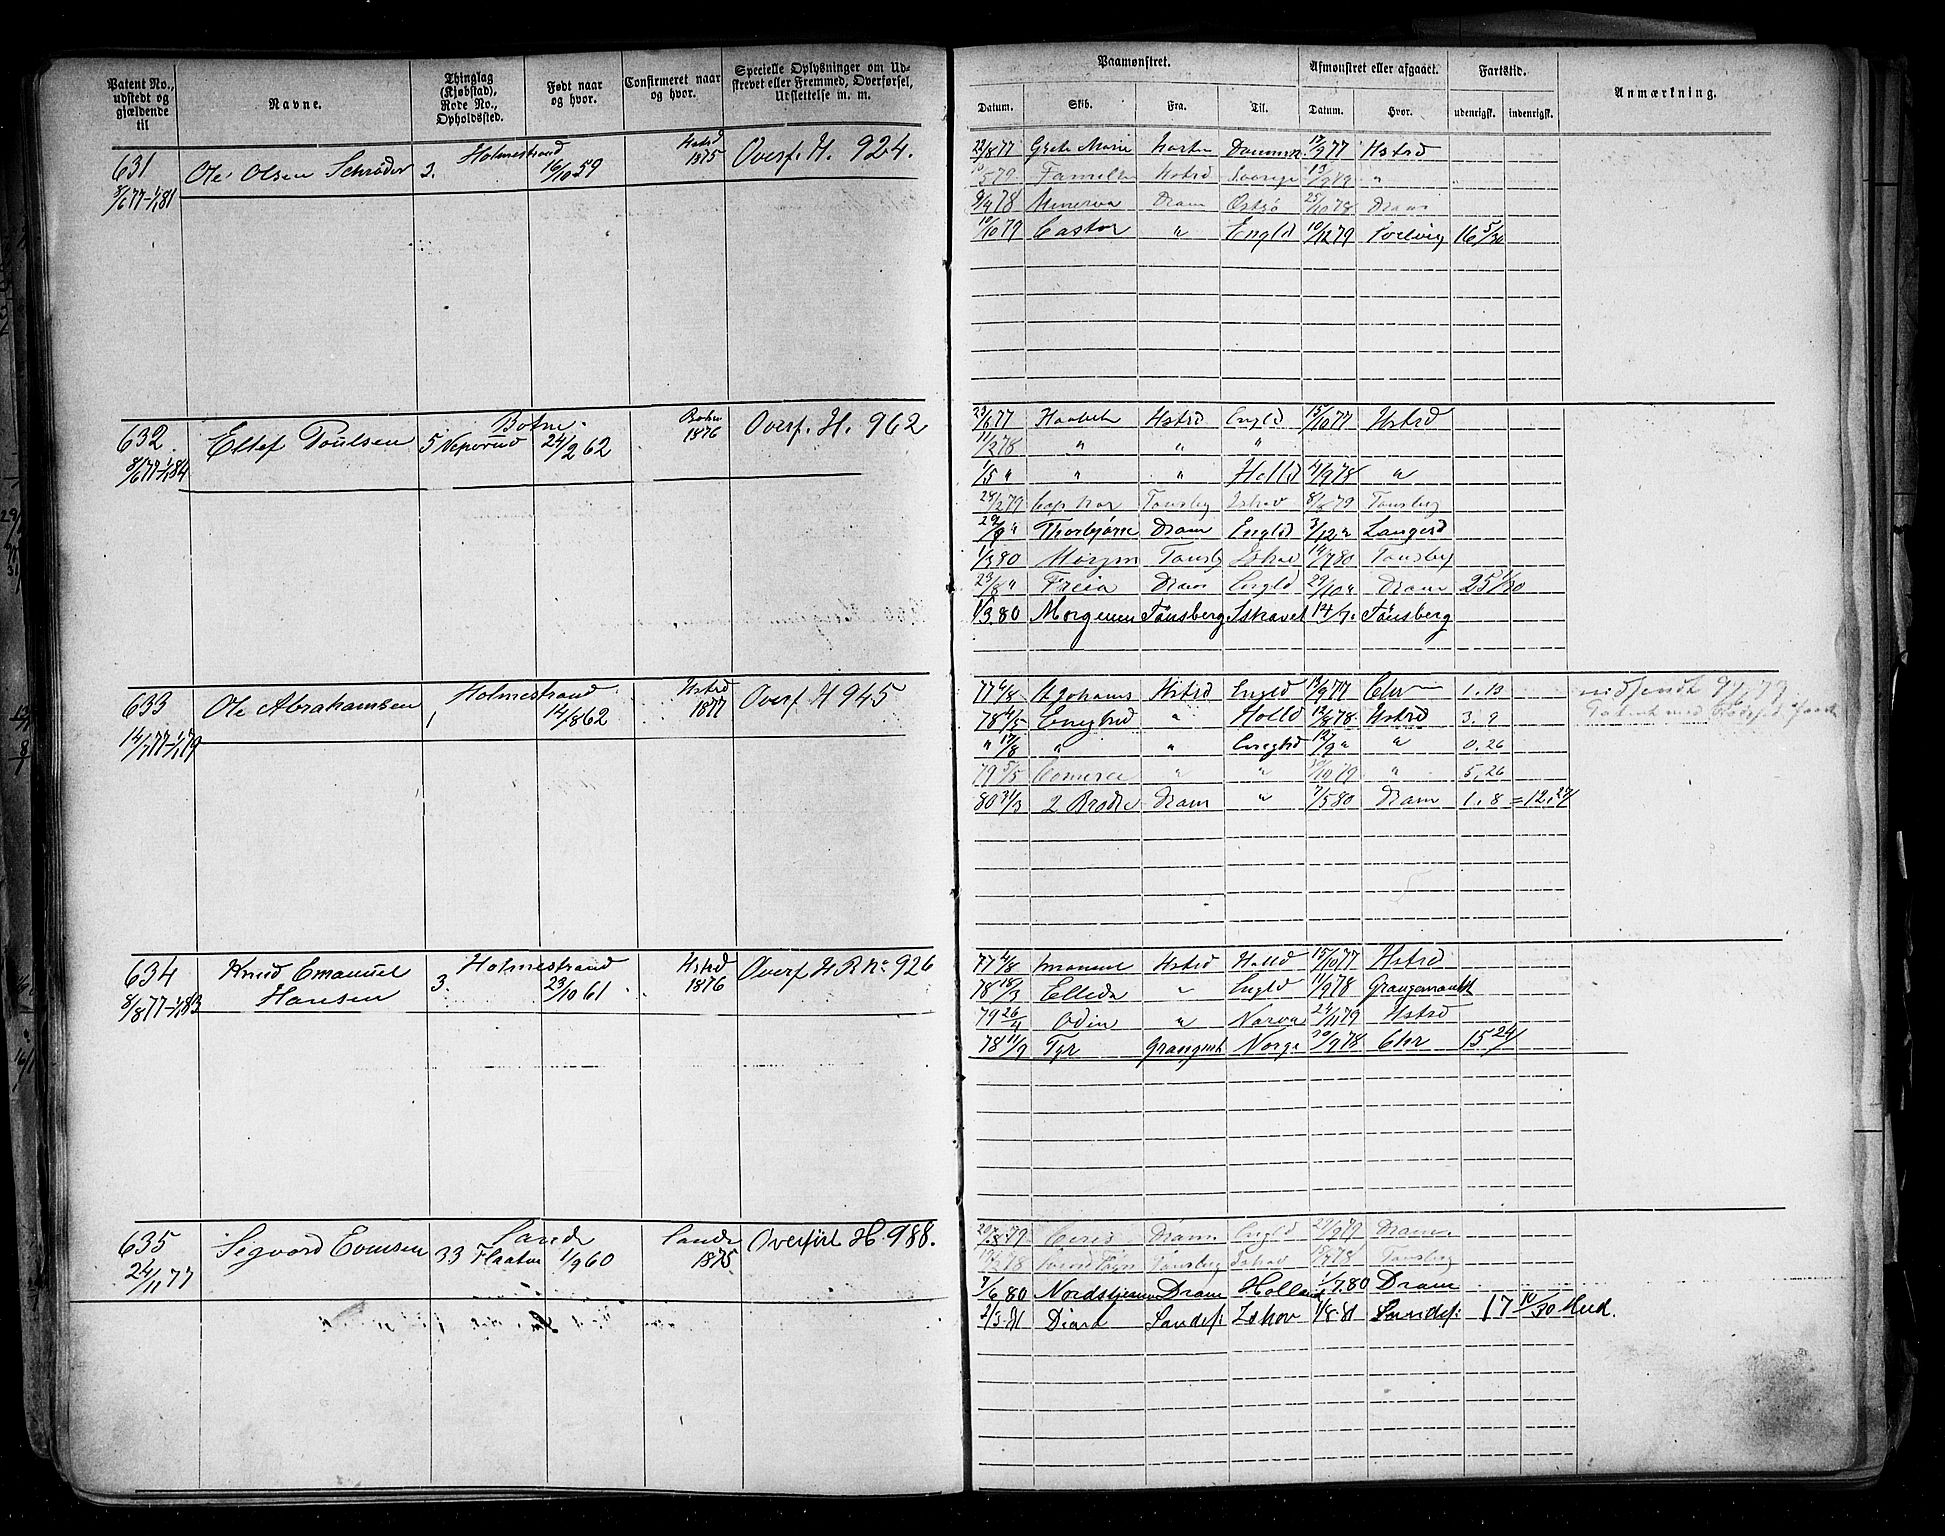 Patent No., udstedt og gjældende til
Navne.
Thinglag (Kjøbstad), Rode No., Opholdssted.
Født naar og hvor.
Confirmeret naar og hvor.
Specielle Oplysninger om Udskrevet eller Fremmed, Overførsel, Udslettelse m. m.
Paamønstret.
Afmønstret eller afgaaet.
Fartstid.
Anmærkning.
Datum. Skib. Fra. Til. Datum. Hvor. udenrigsk. indenrigsk.
631 Ole Olsen Schrøder 3. Holmestrand 16/10 59 1875 Overf. H. 924.
8/6 77-1/1 81
22/8 77 Grete Marie 17/9 77 Hstrd
Hstrd
9/4 78 Minerva Dram Østsjø 25/10 78 Dram
10/10 79 Castor " Engld 10/12 79 16 5/30
632 Ellef Poulsen Botne 5 Neperud 24/2 62 Botne 1876 Overf. H. 962
8/6 77-1/1 84
23/6 77 Haabet Hstrd Engld 15/10 77 Hstrd
11/2 78 " " "
1/5 " " " Holld 4/9 78 "
24/2 79 Tønsbg Ishav 8/8 79 Tønsbg
29/9 " Thorbjørn Dram Engld 3/12 " Langesd
1/3 80 Morgn Tønsb Ishav 14/7 80 Tønsbg
23/8 " Freia Dram Engld 29/10 " Dram 25 1/30
1/3 80 Morgenen Tønsberg Ishavet 14/7. Tønsberg
633 Ole Abrahamsen 1 Holmestrand 14/8 62 Hstrd 1877 Overf H 945
14/7 77-1/1 79
77 6/8 Hstrd Engld 13/9 77 Chr 1. 13
78 4/5 Englnd " Holld 12/8 78 Hstrd 3. 9
" 17/8 " " Engld 12/9 " " 0. 26
79 5/5 " " 30/10 79 " 5. 26
80 31/3 2 Brødre Dram " 7/5 80 Dram 1. 8 = 12. 27/
634 Knud Emanuel Hansen 3. Holmestrand 23/10 61 Hstrd 1876 Overf H R No 926
8/8 77-1/1 83
77 4/8 Hstrd Holld 15/10 77 Hstrd
78 18/3 Ellida " Engld 11/9 78 Grangemouth
79 26/4 Odin " Narva 24/11 79 Hstrd
78 11/9 Tyr Grangmt Norge 30/9 78 Chr 15 24/
635 Segvard Evensen Sande 33 Flaaten 1/9 60 Sande 1875 Overført H. 988.
24/11 77
Ceres Dram Engld 29/9 79 Dram
Tønsberg Ishav Tønsbg
7/6 80 Nordstjernen Dram Holland 1/7 80 Dram
2/3 81 Sandef: Ishav 1/8 81 Sandef: 17 10/30 Md.